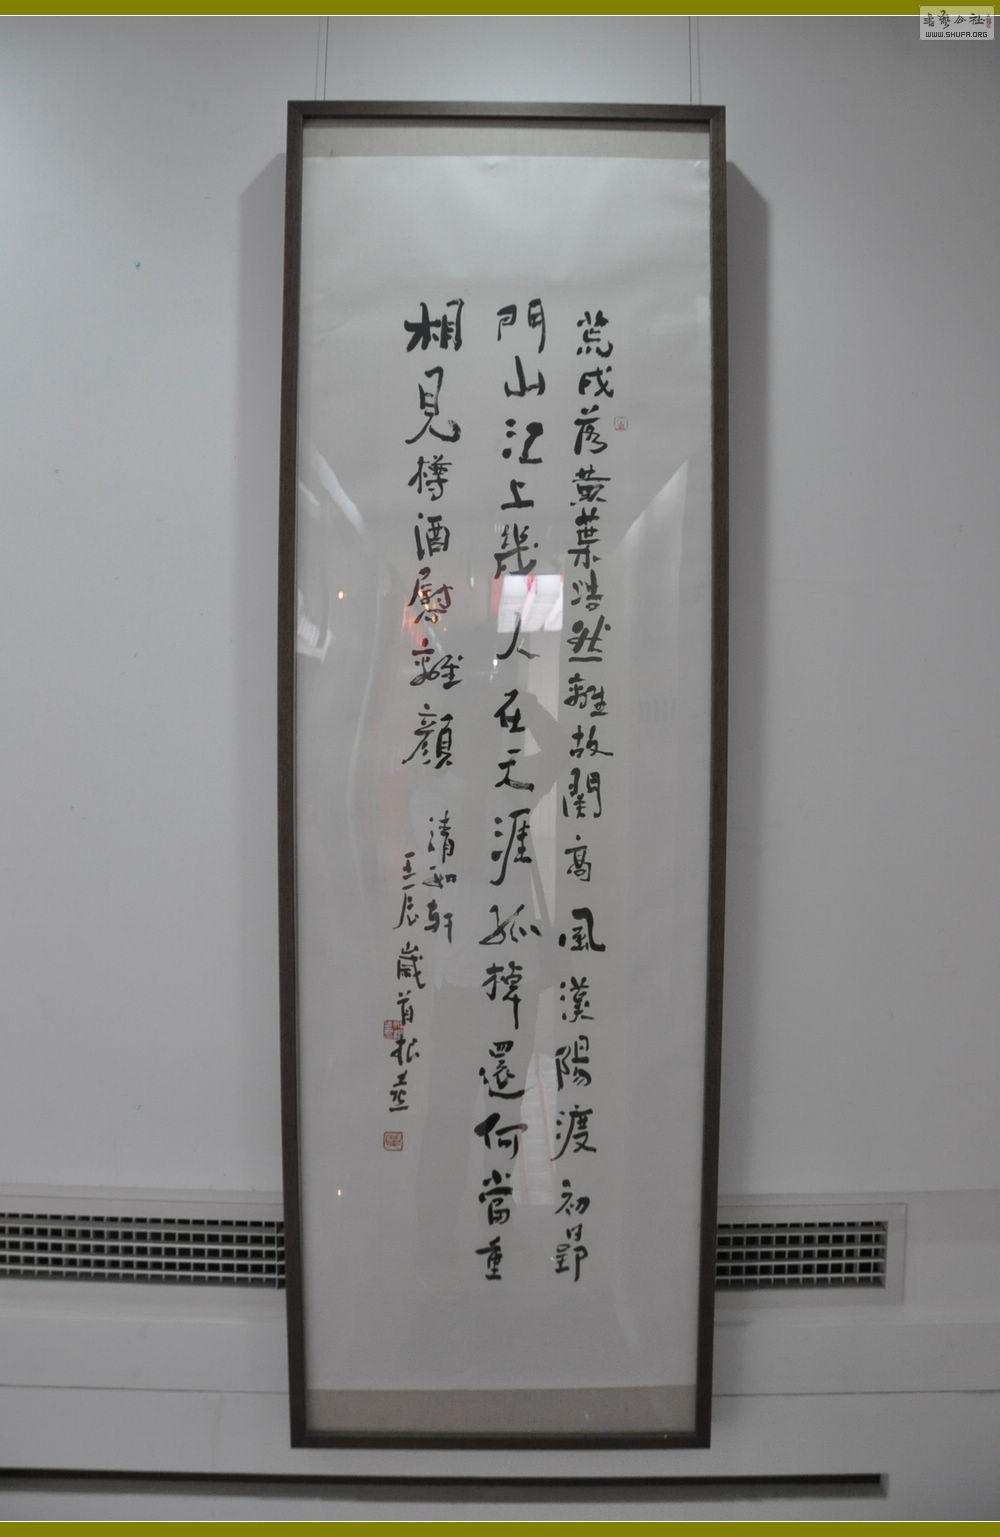 荒戍落黃葉浩然離故關高風漢陽渡初日郢
門山江上幾人在天涯孤棹還何當重
相見樽酒慰離顏
清和軒
壬辰歲首
书艺公社
WWW.SHUFA.ORG